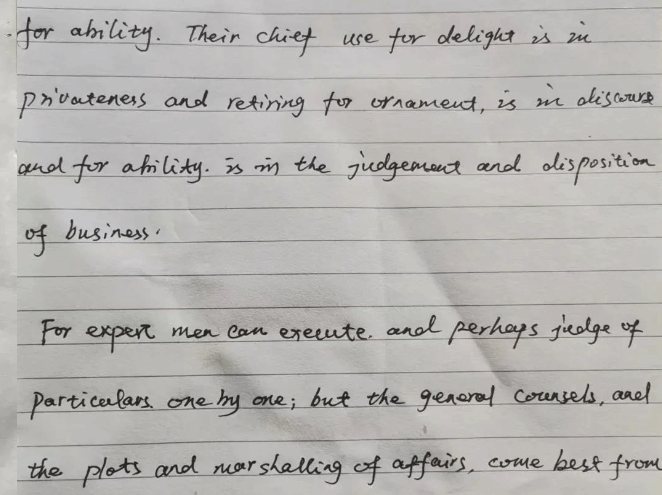 for ability. Their chief use for delight is in
privateness and retiring for ornament, is in discourse
and for ability. is in the judgement and disposition
of business.
For expert men can execute. and perhaps judge of
particulars. one by one; but the general counsels, and
the plots and marshalling of affairs, come best from